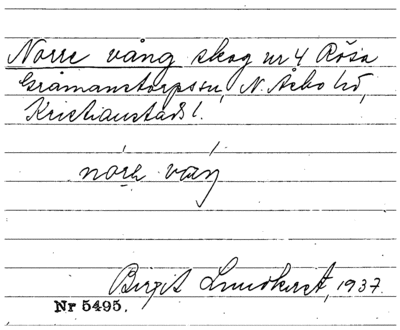 Norre vång skog nr 4 Röša
Gråmanstorps sn, N. Åsbo hd,
Kristianstads l.
nòrə váŋ
Birgit Lundkvist, 1937.
Nr 5495.